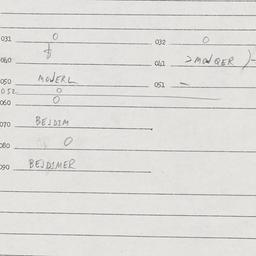 031 0 032 0
040 041 > MOWQER )-
050 MOWERL 051 -
052 0
060 0
070 BEJDIM
080 0
090 BEJDIMER